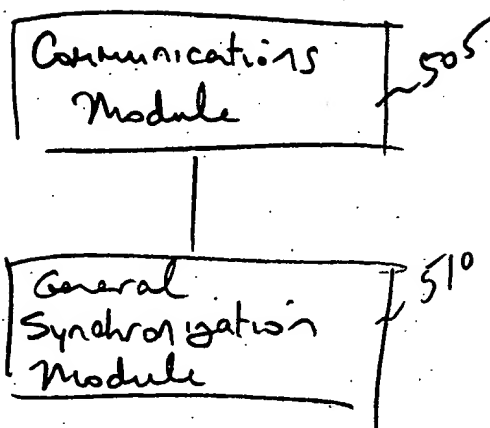 Communications
Module
505
General
Synchronization
Module
510